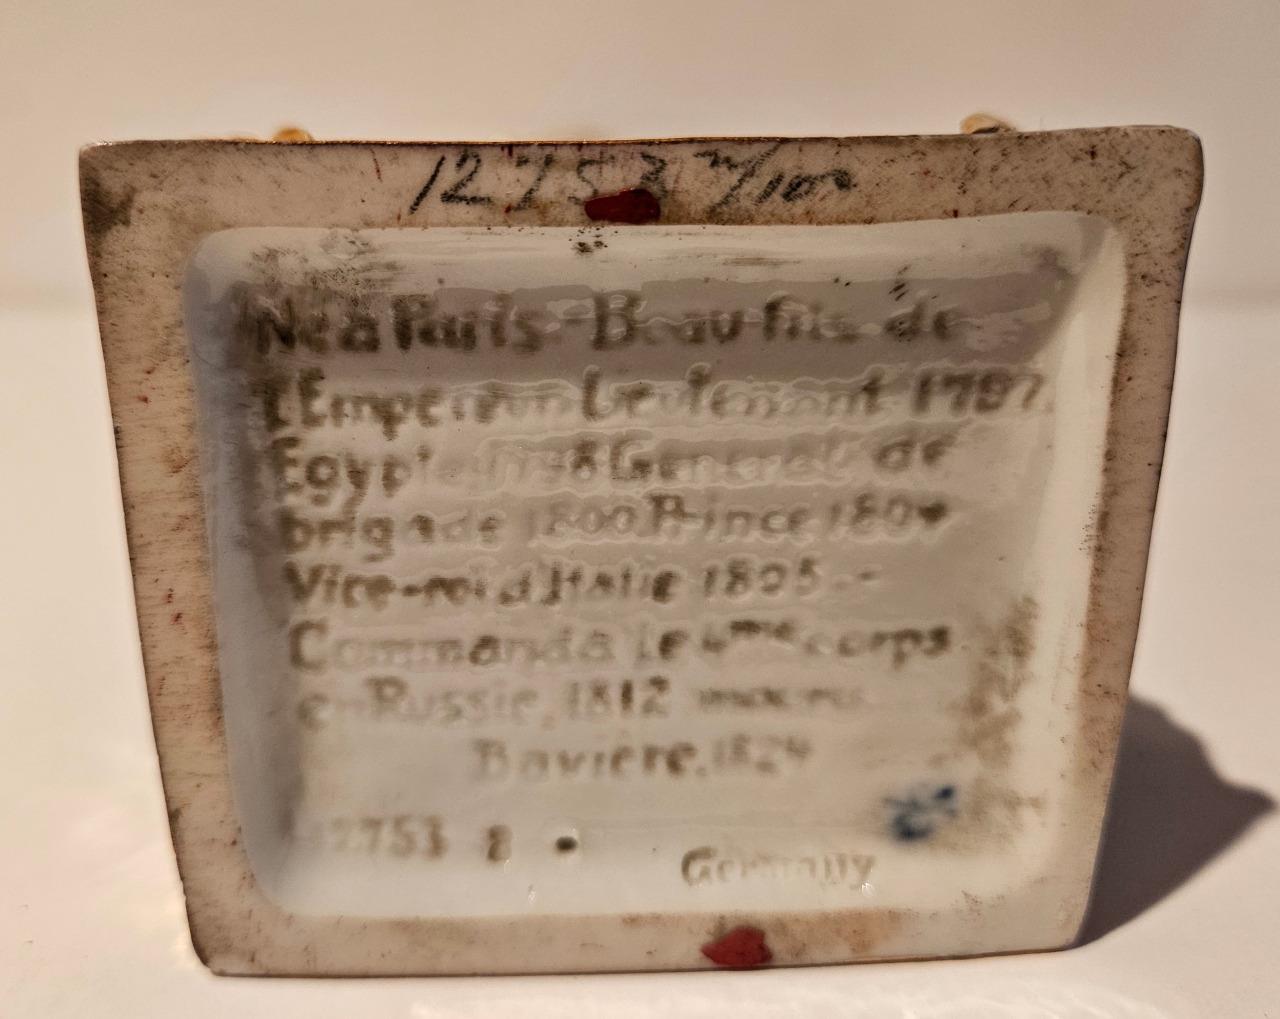 12753
Né à Paris - Beau fils de
L'Empereur Lieutenant 1787
Egypte Général de
brigade 1800 Prince 1804
Vice-roi d'Italie 1805 --
Commanda le 4me corps
en Russie, 1812
Bavière, 1824
12753 8
Germany